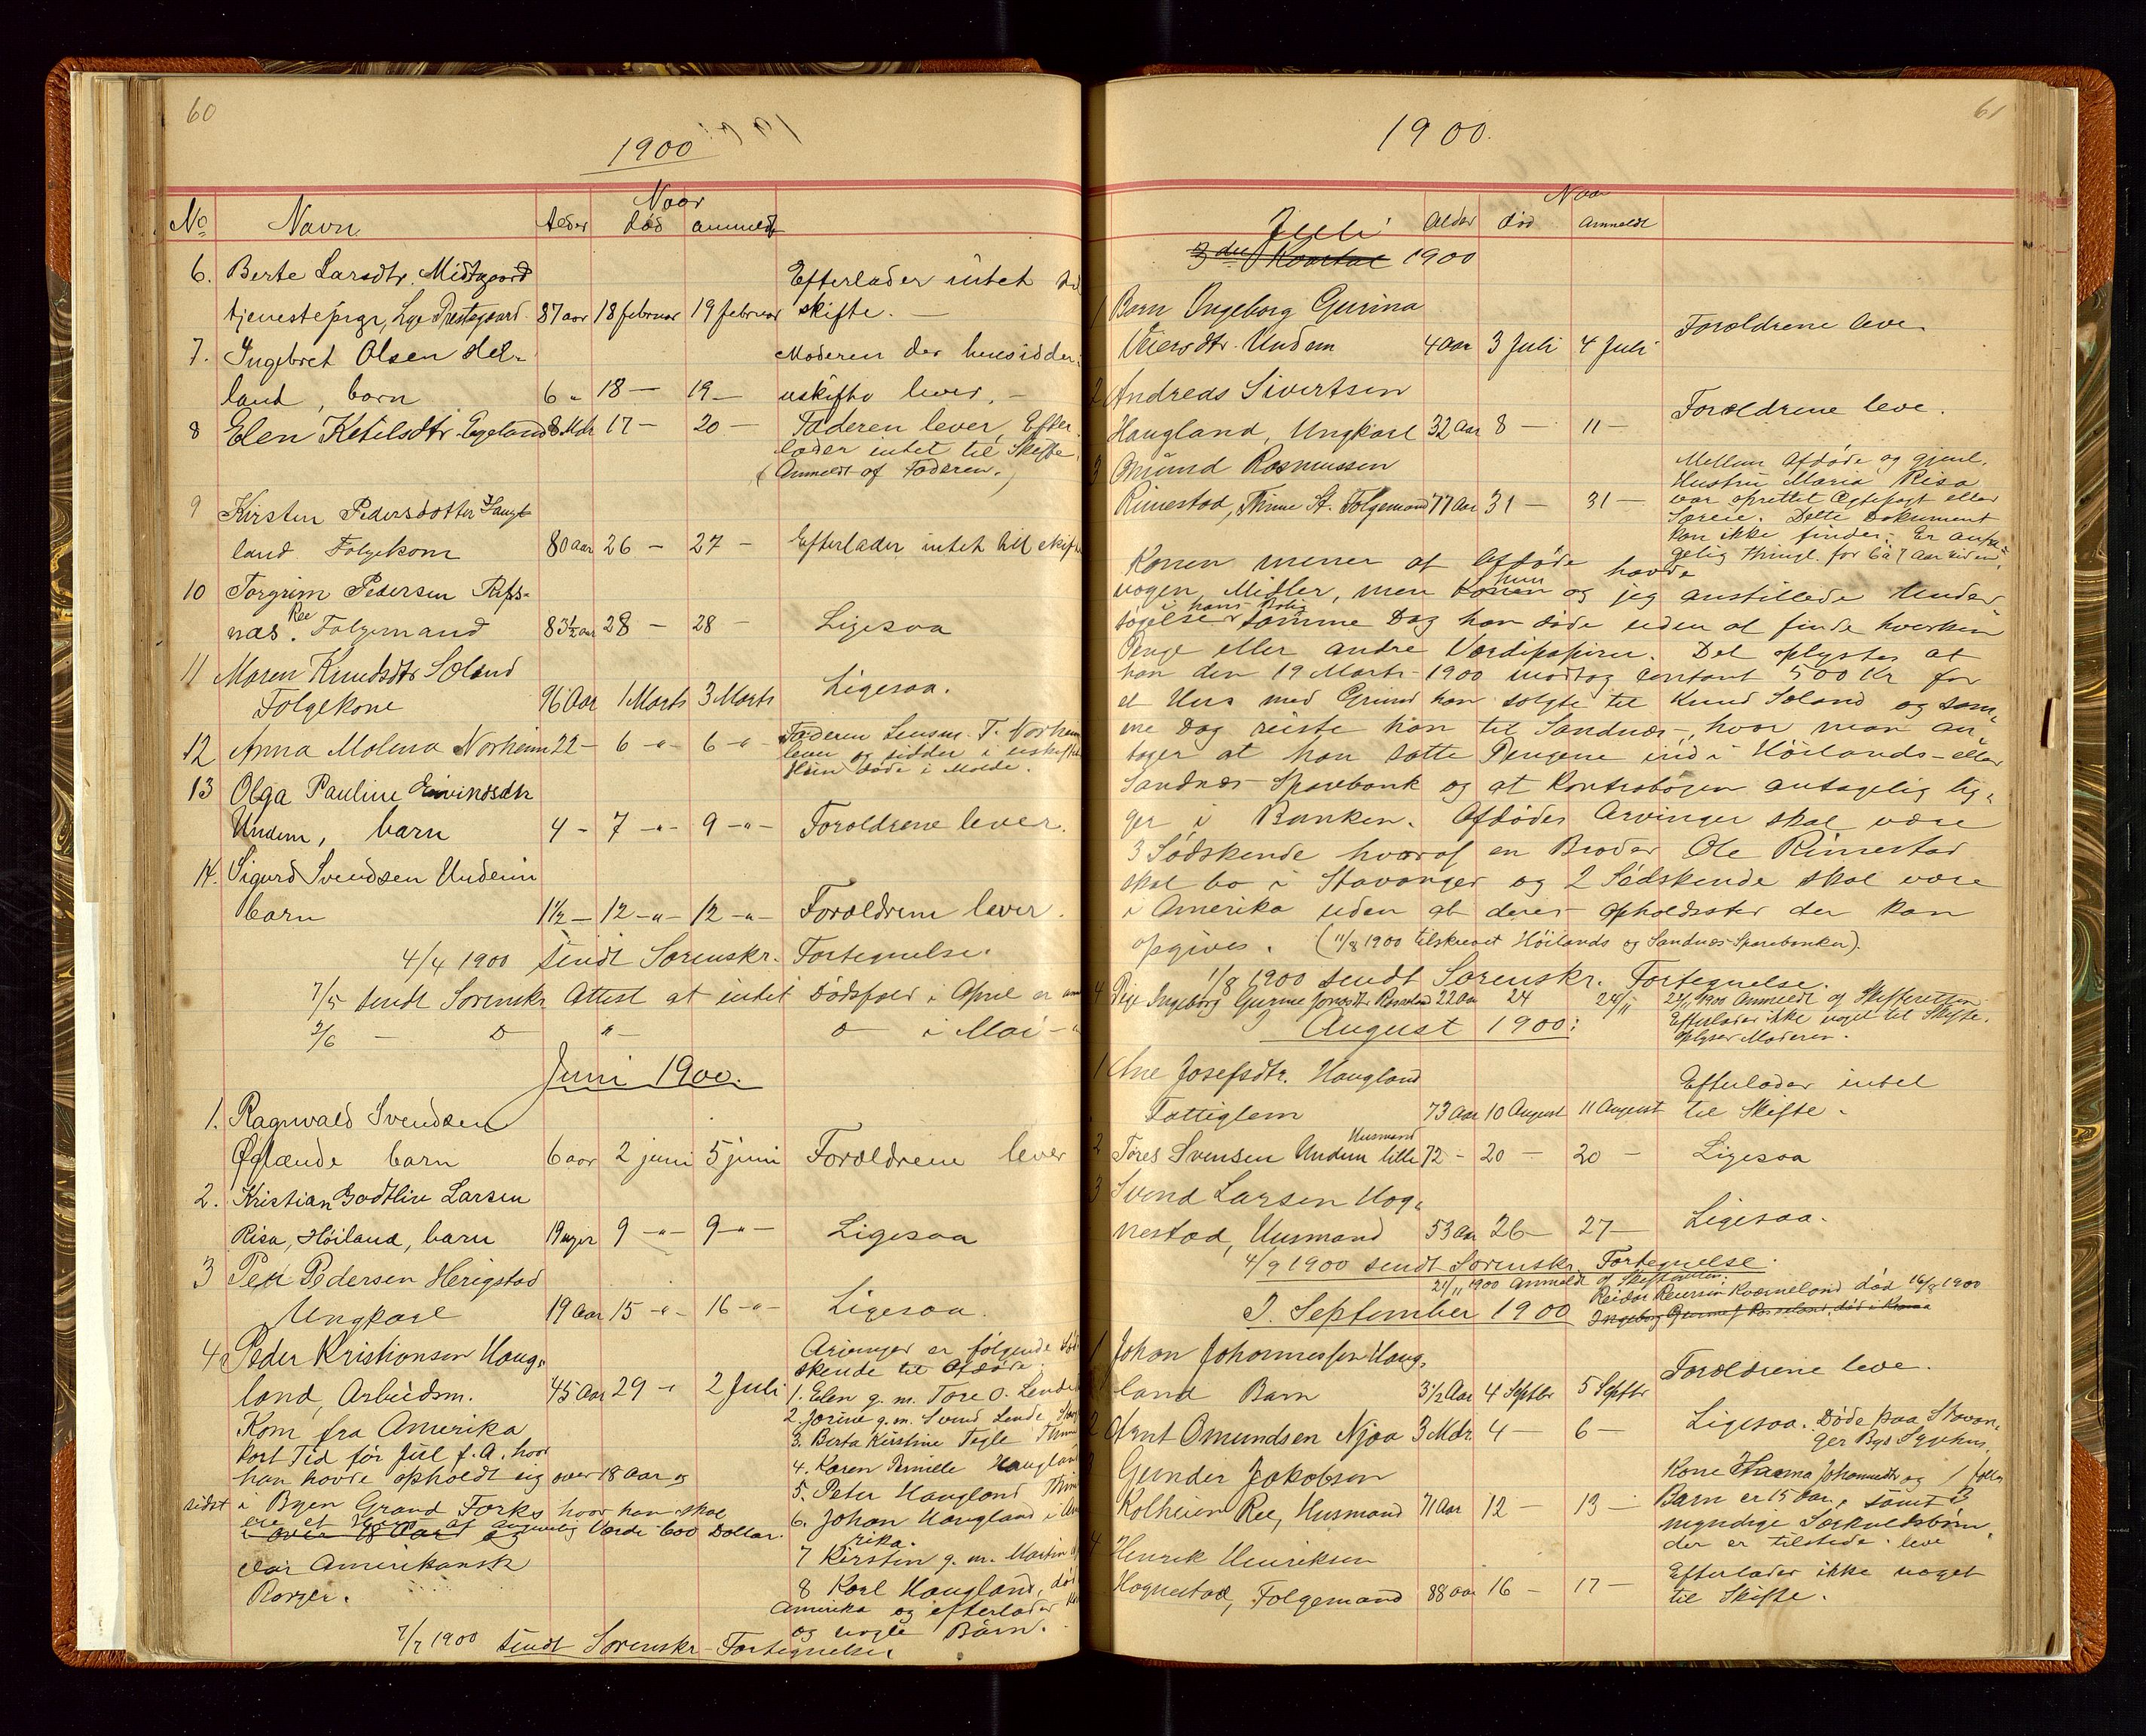 60
1900
No Navn Alder Naar død anmeldt
6. Berte Larsdtr. Midtgaard Efterlader intet
tjenestepige, Lye Prestegaard 87 aar 18 februar 19 februar skifte. —
7. Ingebret Olsen Hel- Moderen der hensidder
land, barn 6 " 18 — 19 — uskifte lever. —
8 Elen Ketilsdtr. Egeland 8 Mdr 17 — 20 — Faderen lever, Efter-
lader intet til Skifte.
(Anmeldt af Faderen.)
9 Kirsten Pedersdotter Haug-
land Folgekone 80 aar 26 — 27 — Efterlader intet till skifte
10 Torgrim Pedersen Refs-
næs. Ree Folgemand 83½ aar 28 — 28 — Ligesaa
11 Maren Knudsdtr Soland
Folgekone 96 Aar 1 Marts 3 Marts Ligesaa.
12 Anna Malena Norheim 22 — 6 -"- 6 -"- Faderen Lensm. T. Norheim
lever og sidder i uskiftet
Hun døde i Molde.
13 Olga Pauline Eivindsdtr
Undem, barn 4 - 7 -"- 9 -"- Forældrene lever.
14. Sigurd Svendsen Undeim
barn 1½ — 12 -"- 12 -"- Forældrene lever.
4/4 1900 sendt Sorenskr. Fortegnelse.
7/5 sendt Sorenskr. Attest at intet Dødsfald i April er
2/6 — D " — o — i Mai —
Juni 1900.
1. Ragnvald Svendsen
Øglænde barn 6 aar 2 juni 5 juni Forældrene lever
2. Kristian Godtlive Larsen
Risa, Høiland, barn 19 uger 9 -"- 9 -"- Ligesaa
3 Peder Pedersen Herigstad
Ungkarl 19 Aar 15 -"- 16 -"- Ligesaa.
4. Peder Kristiansen Haug- Arvinger er følgende Sød-
skende til Afdøde.
land, Arbeidsm. 45 Aar 29 " 2 Juli 1. Elen g. m. Tore O. Lende
Kom fra Amerika 2. Jorine g. m. Svend Lende
kort Tid før Jul f. A. hvor 3. Berta Kirstine Tegle Thime
han havde opholdt sig over 18 Aar og 4. Karen Pernille Haugland
sidst i Byen Grand Forks hvor han skal 5. Peter Haugland
eie et Huus af Værdi 600 Dollar. 6. Johan Haugland i Ame-
i over 18 Aar og rika.
var Amerikansk 7 Kirstin g. m. Martin
Borger. 8 Karl Haugland, død
Amerika og efterlader
og nogle Børn.
7/7 1900 sendt Sorenskr. Fortegnelse
61
1900.
Alder Naar død Anmeldt
Juli
3die Kvartal 1900
1 Barn Ingeborg Gurina
Veiersdtr. Undem 4 aar 3 Juli 4 Juli Forældrene leve.
2 Andreas Sivertsen
Haugland, Ungkarl 32 Aar 8 — 11 — Forældrene leve.
3 Omund Rasmussen
Rimestad, Thime St. Folgemand 77 Aar 31 — 31 —
Mellem Afdøde og gjenl.
Hustru Maria Risa
var oprettet Ægtepagt eller
Særeie. Dette Dokument
kan ikke findes. Er anta-
gelig thingl. for 6 a 7 Aar siden.
Konen mener at Afdøde havde
nogen Midler, men Konen hun og jeg anstillede Under-
søgelse i hans Bolig samme Dag han døde uden at finde hverken
Penge eller andre Værdipapirer. Det oplystes at
han den 19 Marts 1900 modtog contant 500 Kr for
et Hus med Grund han solgte til Knud Soland og sam-
me Dag reiste han til Sandnæs, hvor man an-
tager at han satte Pengene ind i Høilands- eller
Sandnæs Sparebank og at Kontrabogen antagelig lig-
ger i Banken. Afdødes Arvinger skal være
3 Sødskende hvoraf en Broder Ole Rimestad
skal bo i Stavanger og 2 Sødskende skal være
i Amerika uden at deres Opholdssted der kan
opgives. (11/8 1900 tilskrevet Høilands og Sandnæs Sparebanker).
1/8 1900 sendt Sorenskr. Fortegnelse.
4 Pige Ingeborg Gurine Jonasdtr Rosseland 22 Aar 24 24/11 22/11 1900 Anmeldt af Skifteretten
Efterlader ikke noget til Skifte.
oplyser Moderen.
August 1900:
1 Ane Josefsdtr. Haugland Efterlader intet
Fattiglem 73 Aar 10 August 11 August til Skifte.
2 Tores Svensen Undem lille Husmand 72 — 20 — 20 — Ligesaa
3 Svend Larsen Hog-
nestad, Husmand 53 Aar 26 — 27 — Ligesaa.
4/9 1900 sendt Sorenskr. Fortegnelse.
21/11 1900 Anmeldt af Skifteretten:
Reidar Reiersen Kværneland død 16/8 1900
I September 1900
Ingeborg Gurine J Rosseland, død i
1 Johan Johannessen Haug-
land Barn 3½ Aar 4 Septbr 5 Septbr Forældrene leve.
2 Arnt Omundsen Njaa 3 Mdr. 4 — 6 — Ligesaa. Døde paa Stavan-
ger Bys Sygehus.
3 Gunder Jakobsen Kone Johannesdtr og 1 fælles
Kolheim Ree, Husmand 71 Aar 12 — 13 — Barn er 15 Aar, samt 3
myndige Særkuldsbørn
der er tilstede. leve
4 Henrik Henriksen
Hognestad, Folgemand 88 aar 16 — 17 — Efterlader ikke noget
til Skifte.